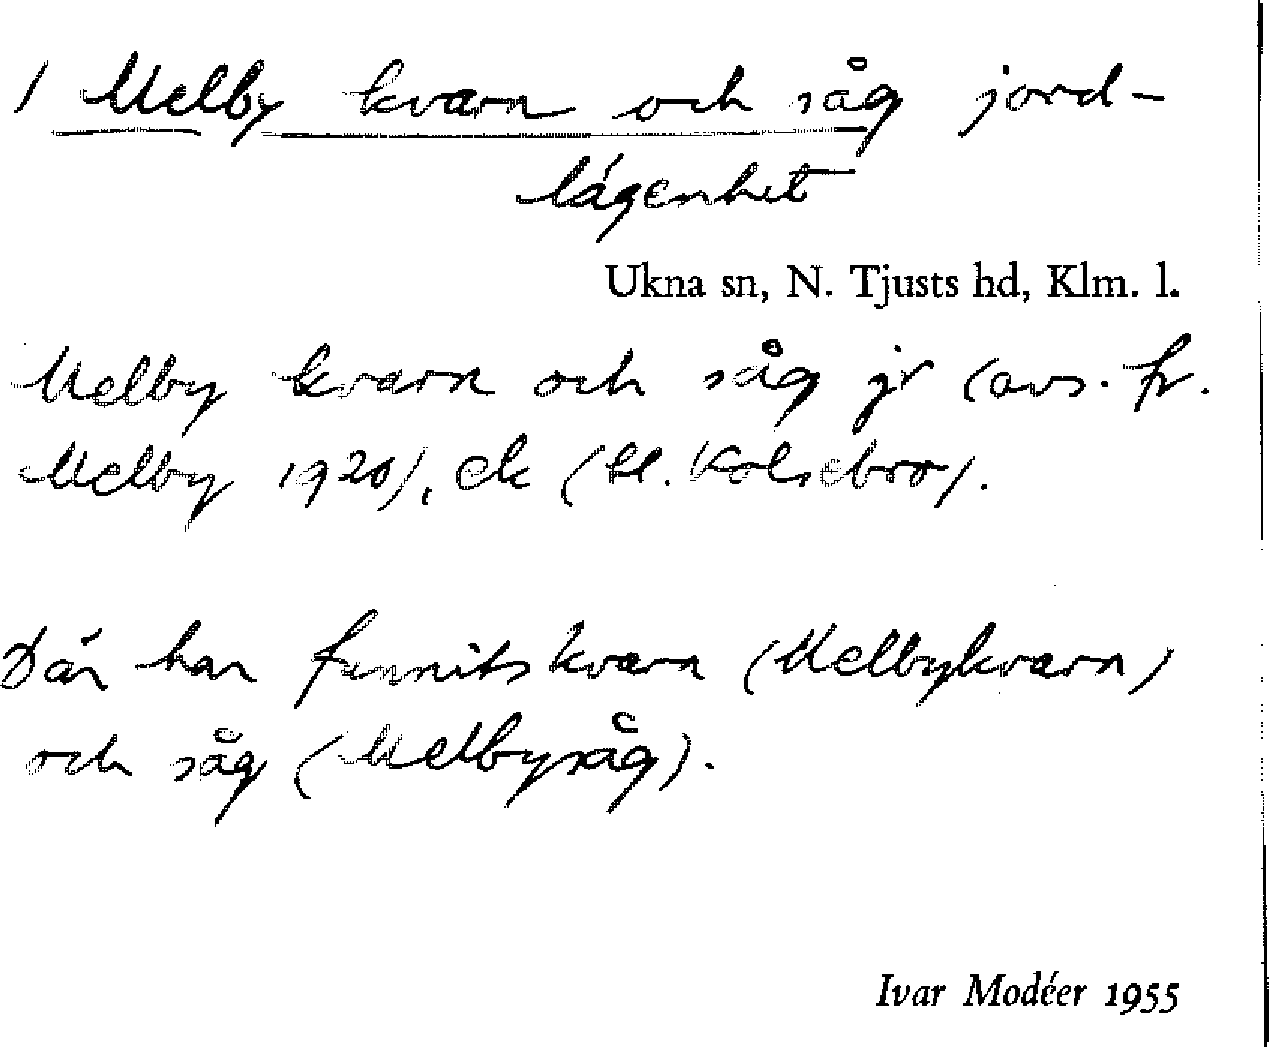 / Melby kvarn och såg jord-
lägenhet
Ukna sn, N. Tjusts hd, Klm. l.
Melby kvarn och såg jr (avs. fr.
Melby 1920), ek (bl. Kolsebro).
Där har funnits kvarn (Melbykvarn)
och såg (Melbysåg).
Ivar Modéer 1955